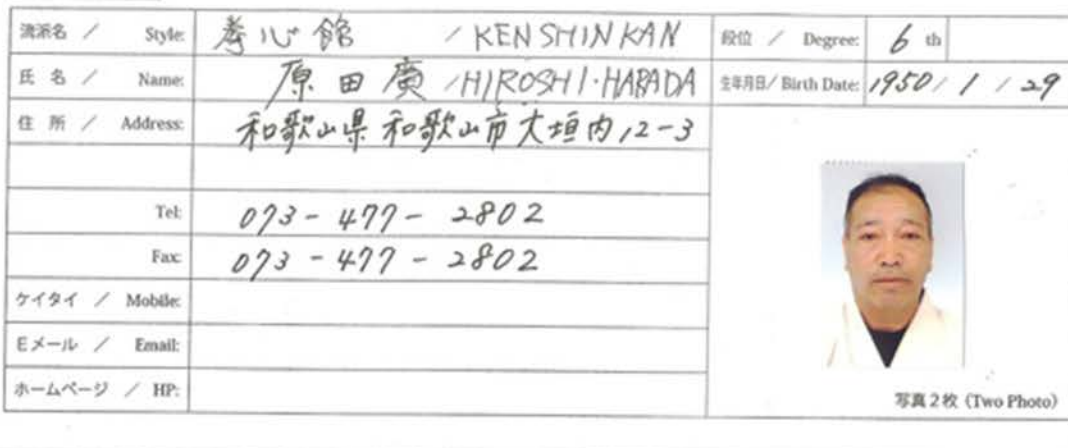 流派名 / Style: 拳心館 / KENSHINKAN 段位 / Degree: 6 th
氏 名 / Name: 原田廣 / HIROSHI・HARADA 生年月日/ Birth Date: 1950 / 1 / 29
住 所 / Address: 和歌山県和歌山市大垣内12-3
Tel: 073-477-2802
Fax: 073-477-2802
ケイタイ / Mobile:
Eメール / Email:
ホームページ / HP:
写真2枚 (Two Photo)